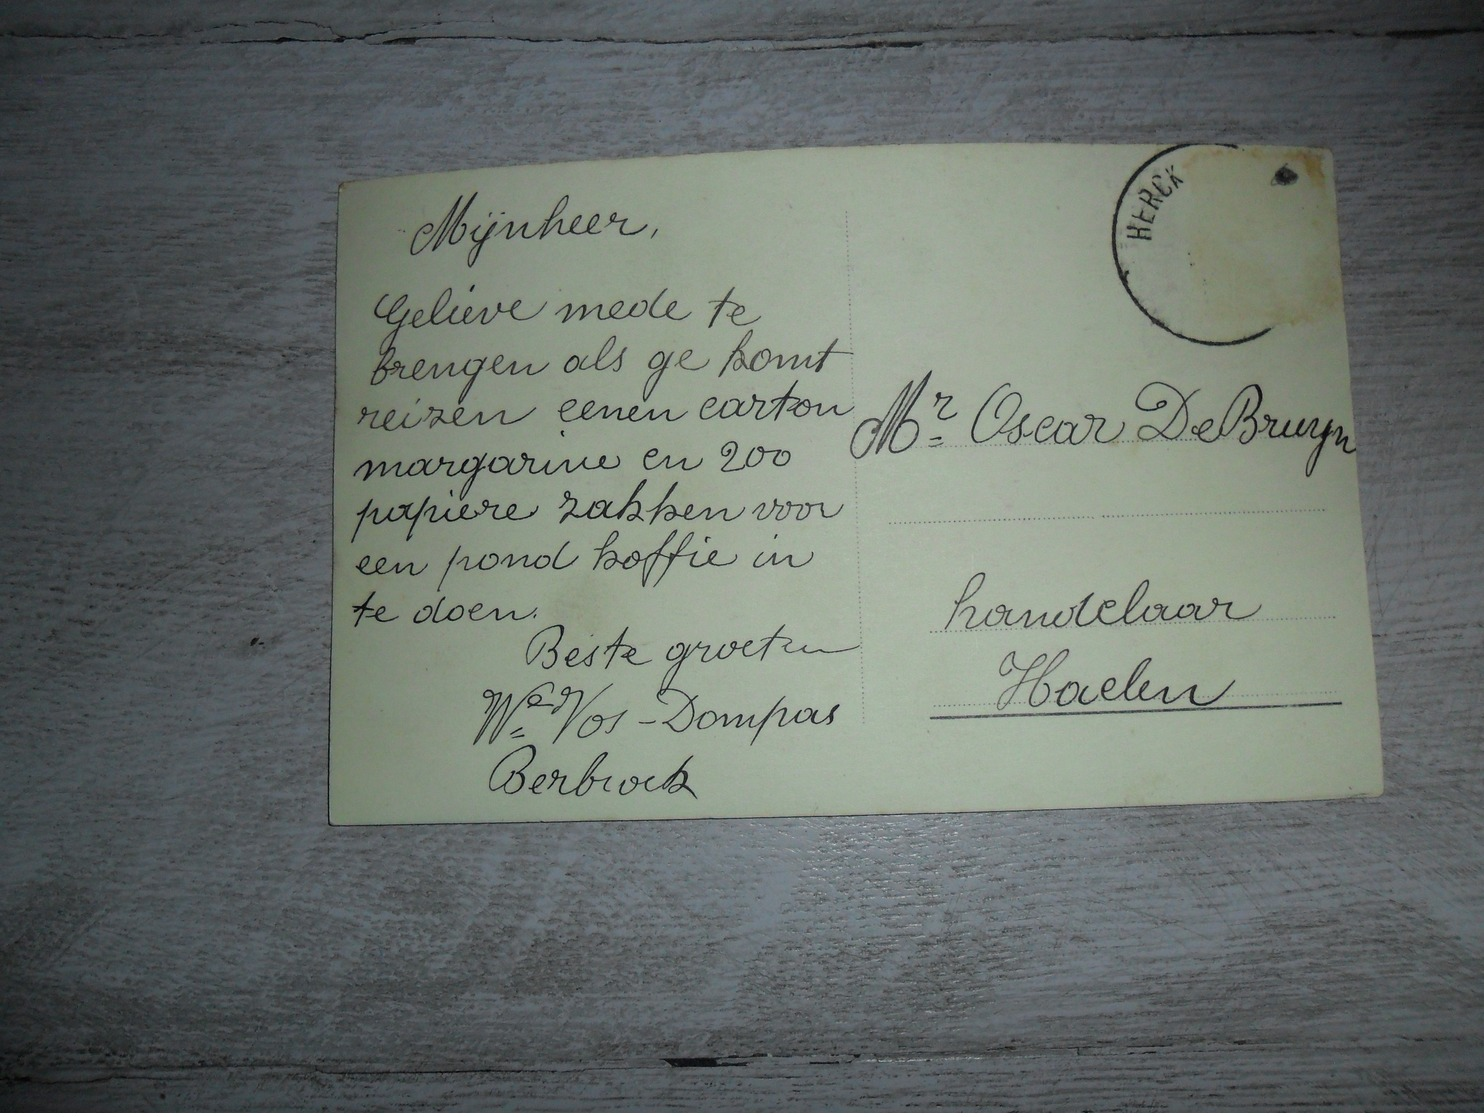 Mijnheer,
Gelieve mede te
brengen als ge komt
reizen eenen carton
margarine en 200
papiere zakken voor
een pond koffie in
te doen.
Beste groeten
We Vos-Dompas
Berbroek
HERCK
Mr Oscar DeBruyn
handelaar
Haelen